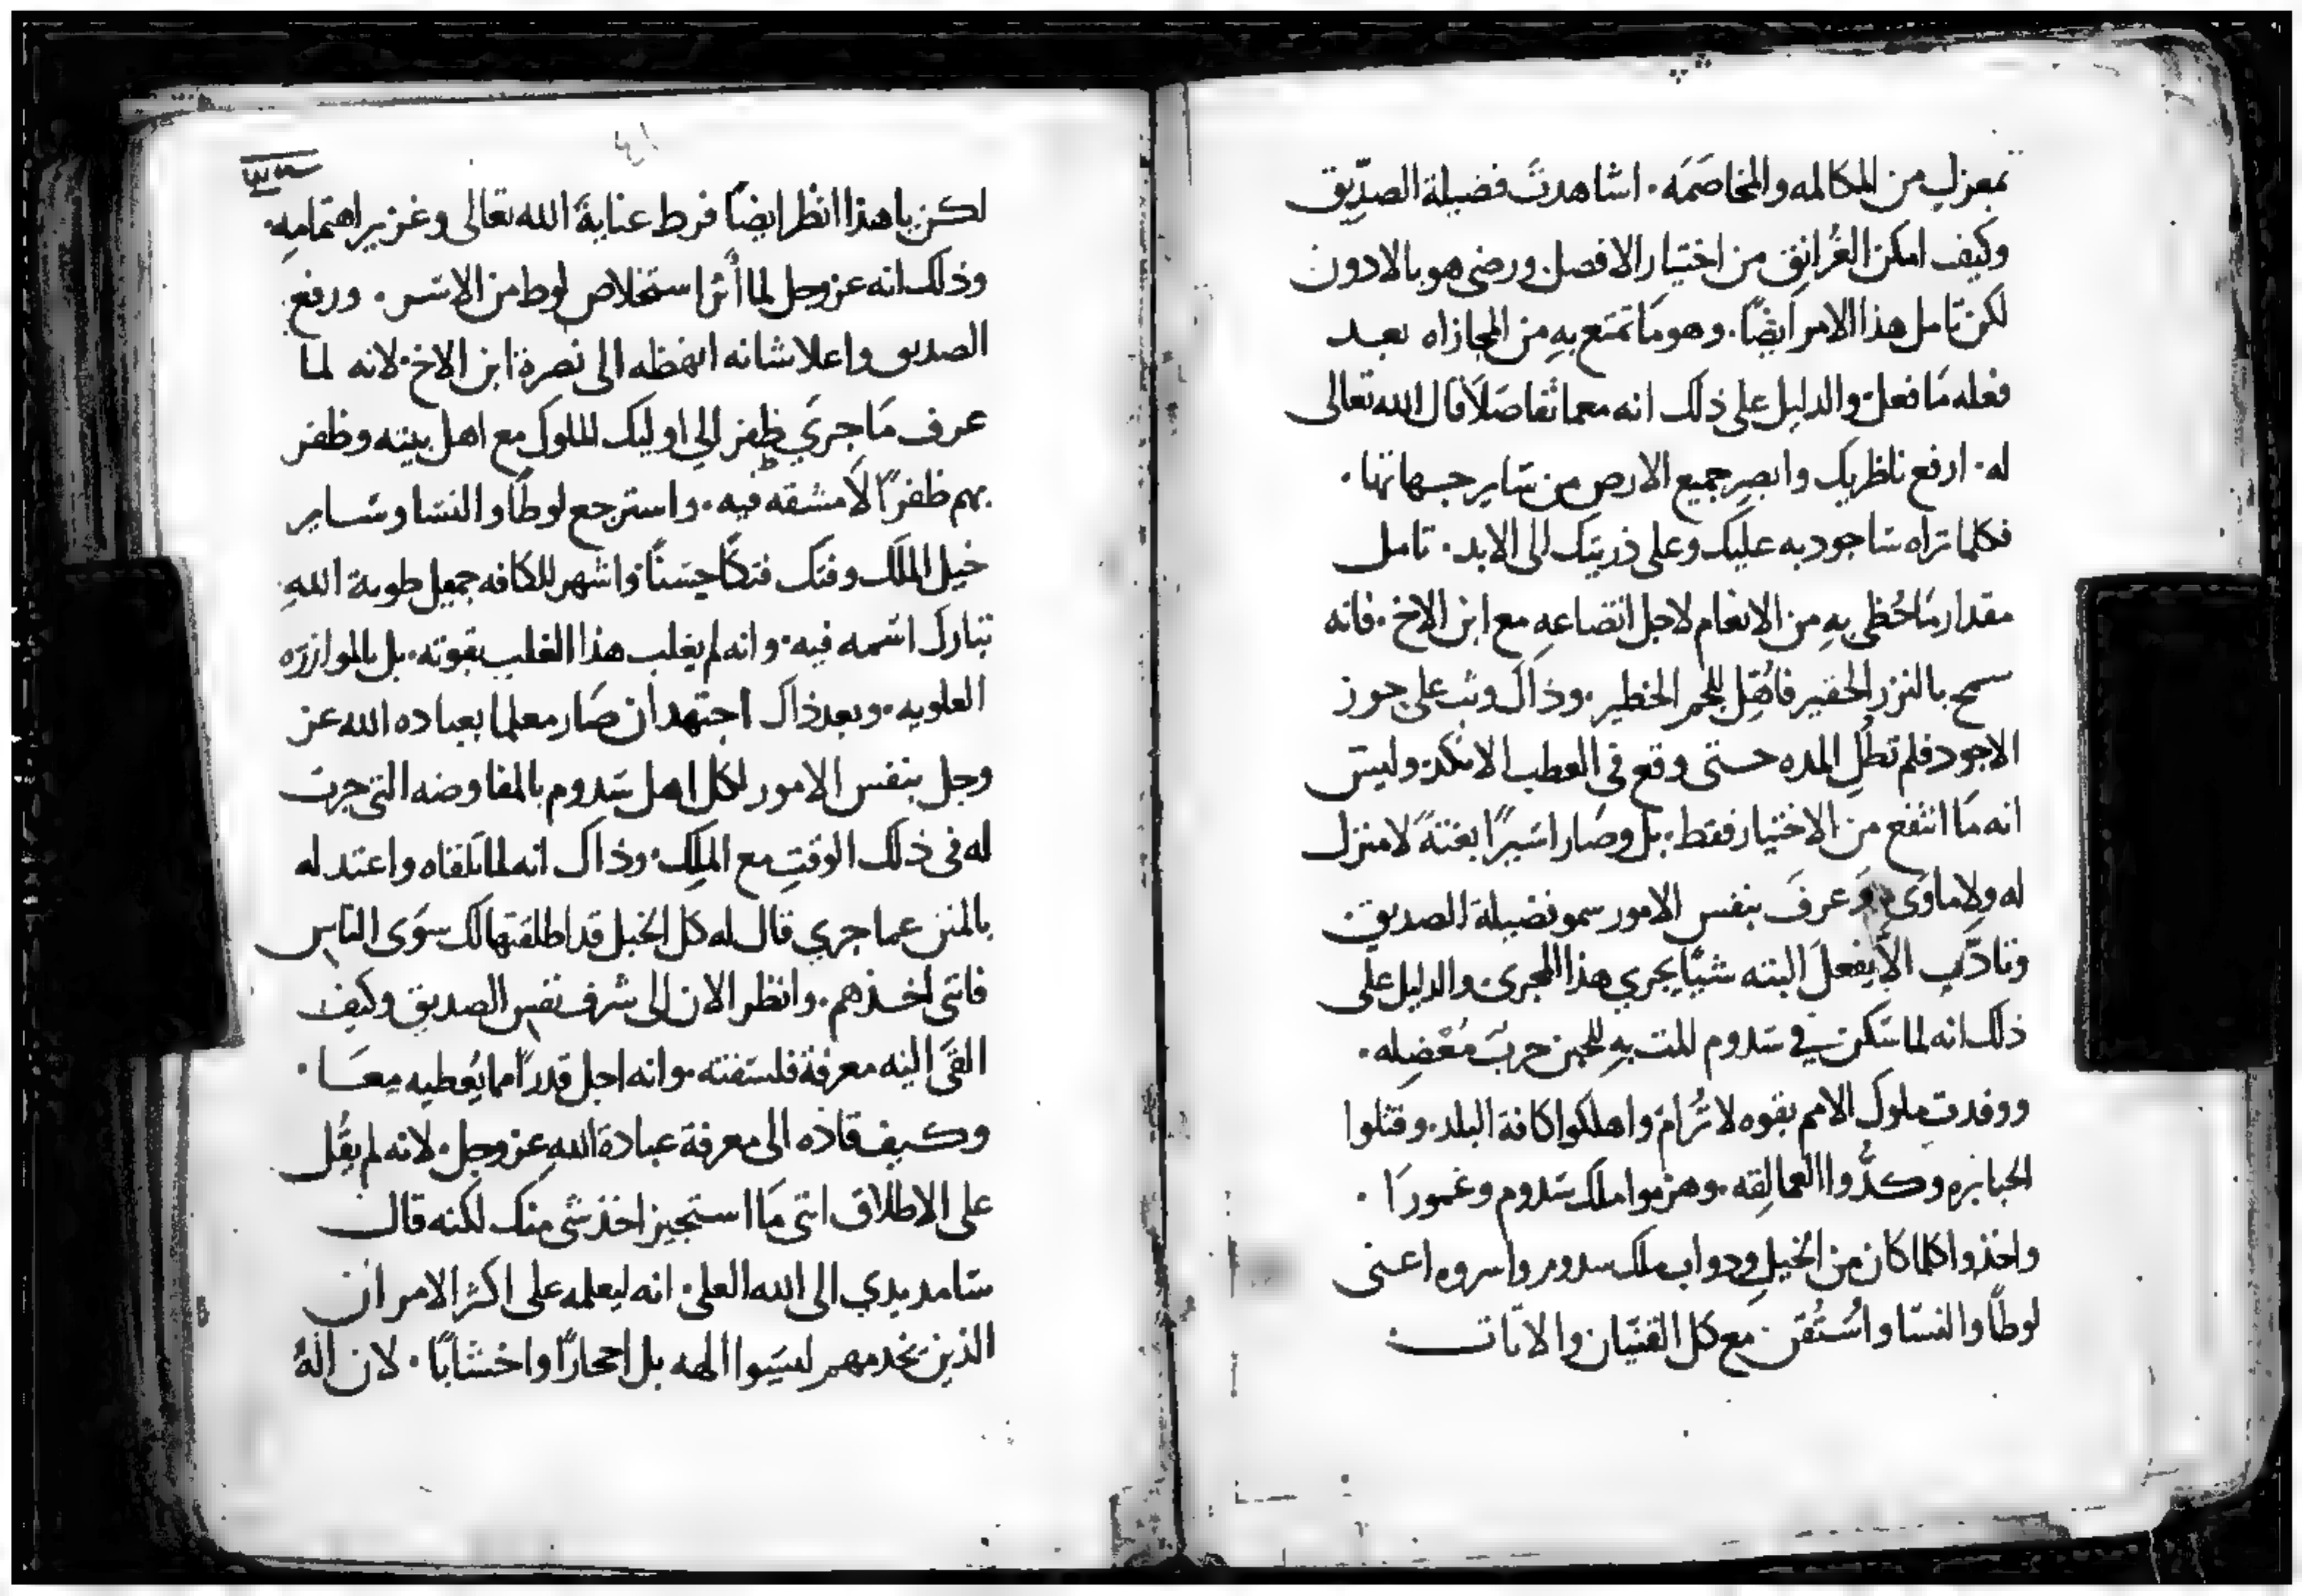 بمعزل من المكالمه والمخاصمَه· اشاهدتَ فضيلة الصدّيق
وكيف امكن الغُرانق من اختيار الافصل ورضى هو بالادون
لكن تامل هذا الامر ايضًا· وهو مَا تمتع بهِ من المجازاه بعد
فعله مَا فعل والدليل على ذلك انه معما تفاصَلَا قال الله تعالى
له· ارفع ناظريك وابصر جميع الارص من سَاير جهاتها·
فكلما تراه سَاجود به عليك وعلى ذريتك الى الابد· تامل
مقدار مَا حُظى بهِ من الانعام لاجل اتضاعهِ مع ابن الاخ· فانه
سمح بالنزر الحقير للجم الخطير· وذاك وثب على حوز
الاجود فلم تطُلِ المده حتى وقع فى العطب الانكد وليسَ
انه مَا انتفع من الاختيار فقط· بل وصَار اسَيرًا بغتةً لا منزل
له ولا ماوَى وَعرفَ بنفس الامور سمو فضيلة الصديق
وتادّب الّا يفعلَ البته شيًا يجري هذا المجرى والدليل على
ذلك انه لما سَكن في سَدوم للت بهِ للحين حربٌ مُعْضِله·
ووفدت ملوك الامم بقوه لا تُرام واهلكوا كافة البلد· وقتلوا
الجبابره وكدُّوا العمالِقه· وهزموا ملك سَدوم وغمورَا·
واخذوا كلما كان من الخيلِ ودواب ملك سدوم واسروه اعنى
لوطًا والنسَا واسُتُقن مع كل القنيان والاثاث
لكن يا هذا انظر ايضًا فرط عنايةَ الله تعالى وغزير اهتمامِهِ·
وذلك انه عز وجل لما أثر استخلاص لوط من الاسَر· ورفع
الصديق واعلا شانه انهظه الى نصرة ابن الاخ· لانه لما
عرف مَا جرَي ظفر الي اوليك الملوك مع اهل بيته وظفر
بهم ظفرًا لَا مشقه فيه· واسترجع لوطًا والنسَا وسَاير
خيل الملك وفتك فتكًا حسَنًا واشهر للكافه جميل طوية اللهِ
تبارك اسَمه فيه· وانه لم يغلب هذا الغلب بقوته· بل بالموازرَه
العلويه· وبعد ذاك اجتهد ان صَار معلما بعباده الله عز
وجل بنفس الامور لكل اهل سَدوم بالمفاوضه التى جرت
له فى ذلك الوقتِ مع الملِك· وذاك انه لما تلقاه واعتد له
بالمنن عما جري قال له كل الخيل قد اطلقتها لك سوَى الناس
فانى اخذهم· وانظر الان الى شرف نفس الصديق وكيف
القَى اليه معرفة فلسَفته· وانه اجل قدرًا مما يُعطيه مِعَا·
وكيف قاده الى معرفة عبادة اللهِ عز وجل· لانه لم يقُل
على الاطلاق اننى مَا استجيز اخذ شى منك لكنه قال
سَامد يدي الى الله العلى· انه ليعلمه على اكثر الامر ان
الذين يخدمهم ليسَوا الهه بل احجارًا واخشابًا· لان اللهُ